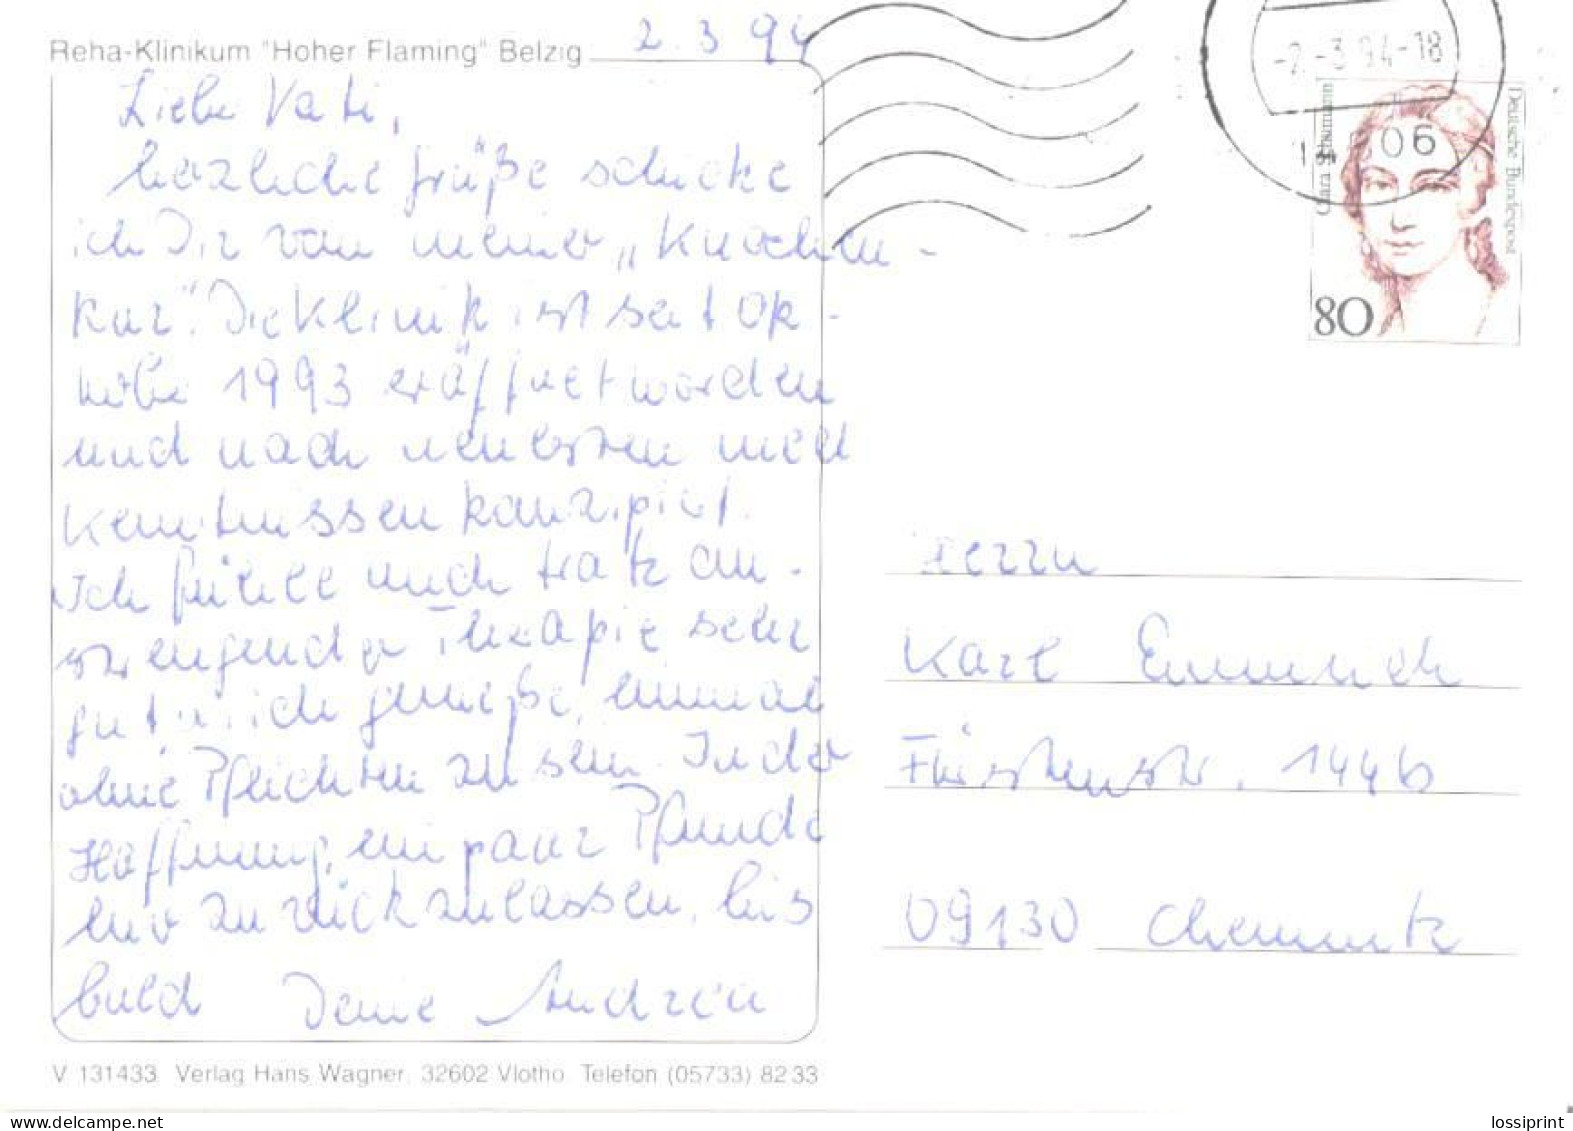 Reha-Klinikum "Hoher Flaming" Belzig
2.3.94
Liebe Vati,
herzliche Grüße schicke
ich Dir von meiner „Knochen-
kur". Die Klinik ist seit Ok-
tober 1993 eröffnet worden
und nach neuesten
Kenntnissen konzipiert.
Ich fühle mich trotz an-
strengender Therapie sehr
gut u. ich genieße, einmal
ohne Pflichten zu sein. In der
Hoffnung, ein paar Pfunde
hier zurückzulassen, bis
bald Deine Andrea
V 131433 Verlag Hans Wagner, 32602 Vlotho Telefon (05733) 8233
-2.-3.94-18
06
Clara Schumann
Deutsche Bundespost
80
Herrn
Karl Emmrich
Fürstenstr. 144b
09130 Chemnitz
lossiprint
delcampe.net